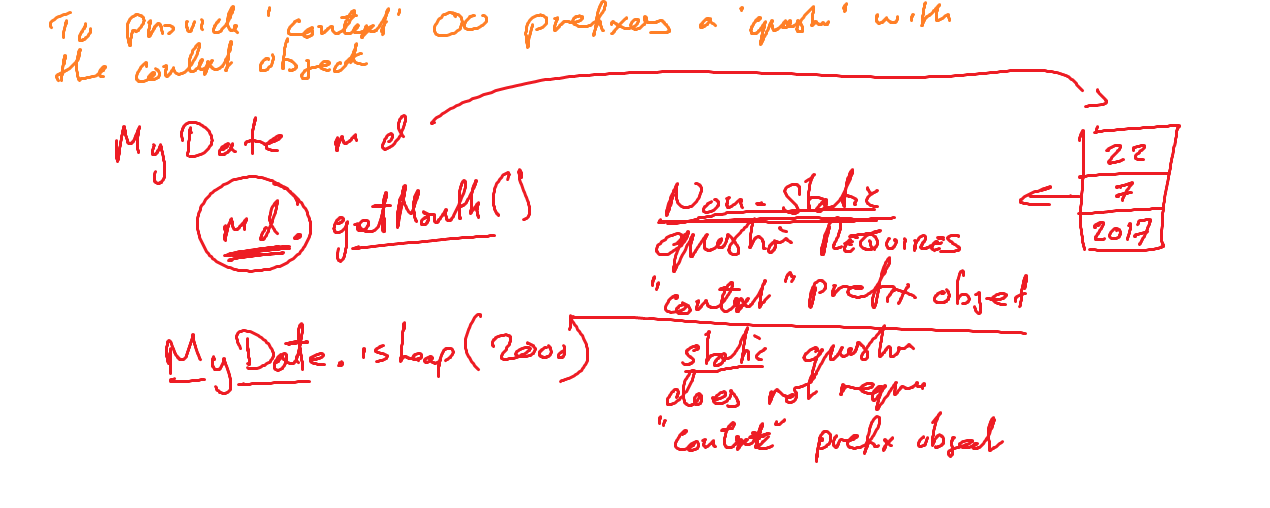 To provide 'context' OO prefixes a 'question' with
the context object
MyDate md
md. getMonth()
22
7
2017
Non-Static
question REQUIRES
"context" prefix object
MyDate. isLeap(2000)
static question
does not require
"context" prefix object